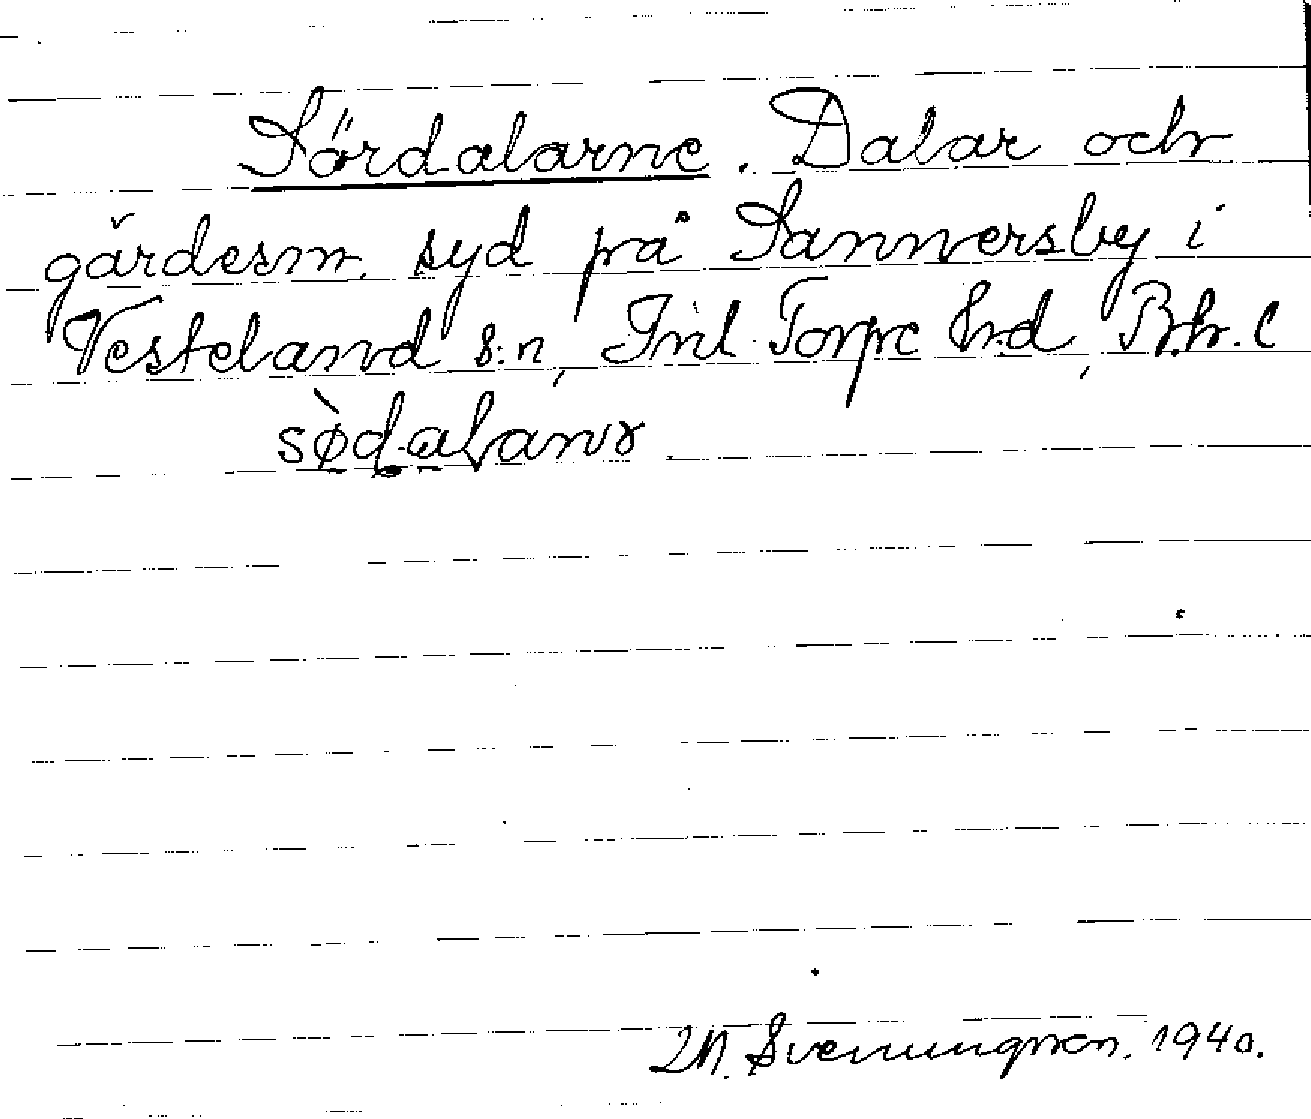 Sördalarne. Dalar och
gärdesm. syd på Sannersby i
Vesteland s:n, Inl Torpe hd, Bh. l
sødalanɤ
Svenungsson. 1940.